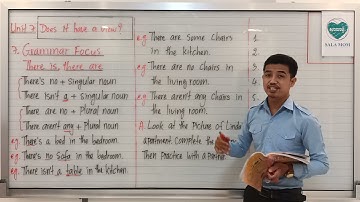 Unit 7 Does it have a view?
7. Grammar Focus
There is, there are
There's no + Singular noun
There isn't a + singular noun
There are no + Plural noun
There aren't any + Plural noun
eg. There's a bed in the bedroom.
eg. There's no Sofa in the bedroom.
eg. There isn't a table in the kitchen.
e.g. There are Some Chairs
in the kitchen.
eg There are no Chairs in
the living room.
eg There aren't any Chairs in
the living room.
A. Look at the Picture of Linda
apartment. Complete the
Then Practice with a Partner
1
2
3
4
SALA MOM